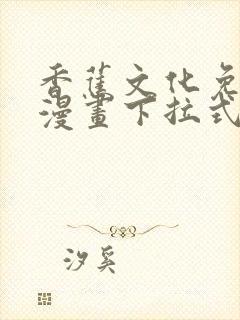 香蕉文化免
漫畫下拉式
汐奚